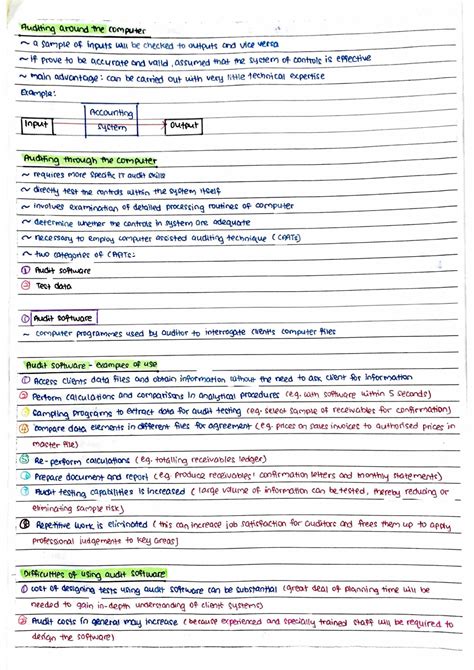 Auditing around the computer
~ a sample of inputs will be checked to outputs and vice versa
~ if prove to be accurate and valid, assumed that the system of controls is effective
~ main advantage: can be carried out with very little technical expertise
Example:
Accounting
Input system Output
Auditing through the computer
~ requires more specific IT audit skills
~ directly test the controls within the system itself
~ involves examination of detailed processing routines of computer
~ determine whether the controls in system are adequate
~ necessary to employ computer assisted auditing technique (CAATs)
~ two categories of CAATs:
① Audit software
② Test data
① Audit software
~ computer programmes used by auditor to interrogate client's computer files
Audit software - examples of use
① Access clients data files and obtain information without the need to ask client for information
② Perform calculations and comparisons in analytical procedures (e.g. with software within 5 seconds)
③ Sampling programs to extract data for audit testing (e.g. select sample of receivables for confirmation)
④ compare data elements in different files for agreement (e.g. prices on sales invoices to authorised prices in
master file)
⑤ Re-perform calculations (e.g. totalling receivables ledger)
⑥ Prepare document and report (e.g. produce receivables' confirmation letters and monthly statements)
⑦ Audit testing capabilities is increased (large volume of information can be tested, thereby reducing or
eliminating sample risk)
⑧ Repetitive work is eliminated (this can increase job satisfaction for auditors and frees them up to apply
professional judgements to key areas)
Difficulties of using audit software
① cost of designing tests using audit software can be substantial (great deal of planning time will be
needed to gain in-depth understanding of client systems)
② Audit costs in general may increase (because experienced and specially trained staff will be required to
design the software)